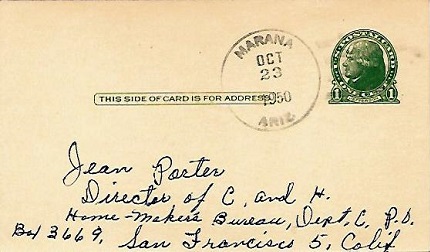 MARANA
OCT
23
1950
ARIZ.
THIS SIDE OF CARD IS FOR ADDRESS
1 1
Jean Porter
Director of C. and H.
Home-Makers Bureau, Dept. C, P.O.
Box 3669, San Francisco 5, Calif.